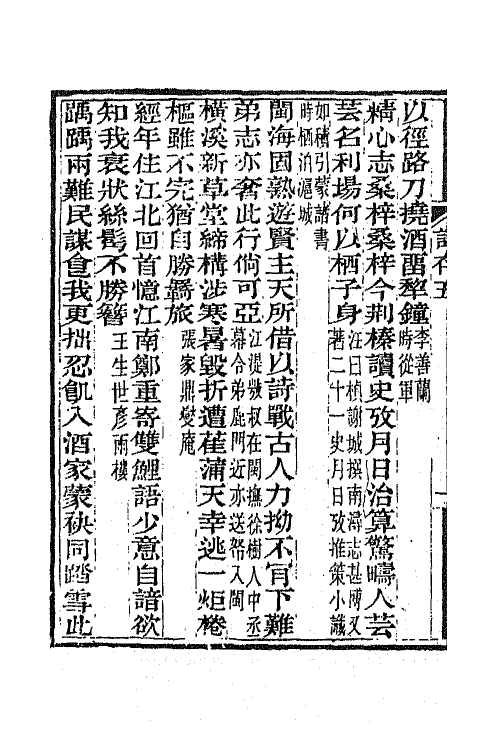 以徑路刀撓酒畱犂鐘李善蘭時從軍
精心志桑梓桑梓今荆榛讀史攷月日治算驚疇人芸
芸名利場何以栖子身汪曰楨謝城撰南潯志甚博又著二十一史月日攷推策小識
如積引蒙諸書時栖泊滬城
閩海固熟遊賢主天所借以詩戰古人力拗不肎下難
弟志亦奢此行倘可亞江湜弢叔在閩撫徐樹人中丞幕令弟鹿門近亦送帑入閩
橫溪新草堂締構涉寒暑毀折遭萑蒲天幸逃一炬桊
樞雖不完猶自勝羇旅張家鼎燮庵
經年住江北回首憶江南鄭重寄雙鯉語少意自諳欲
知我衰狀絲鬂不勝簪王生世彥雨樓
踽踽兩難民謀食我更拙忍飢入酒家蒙袂同踏雪此
詩存五